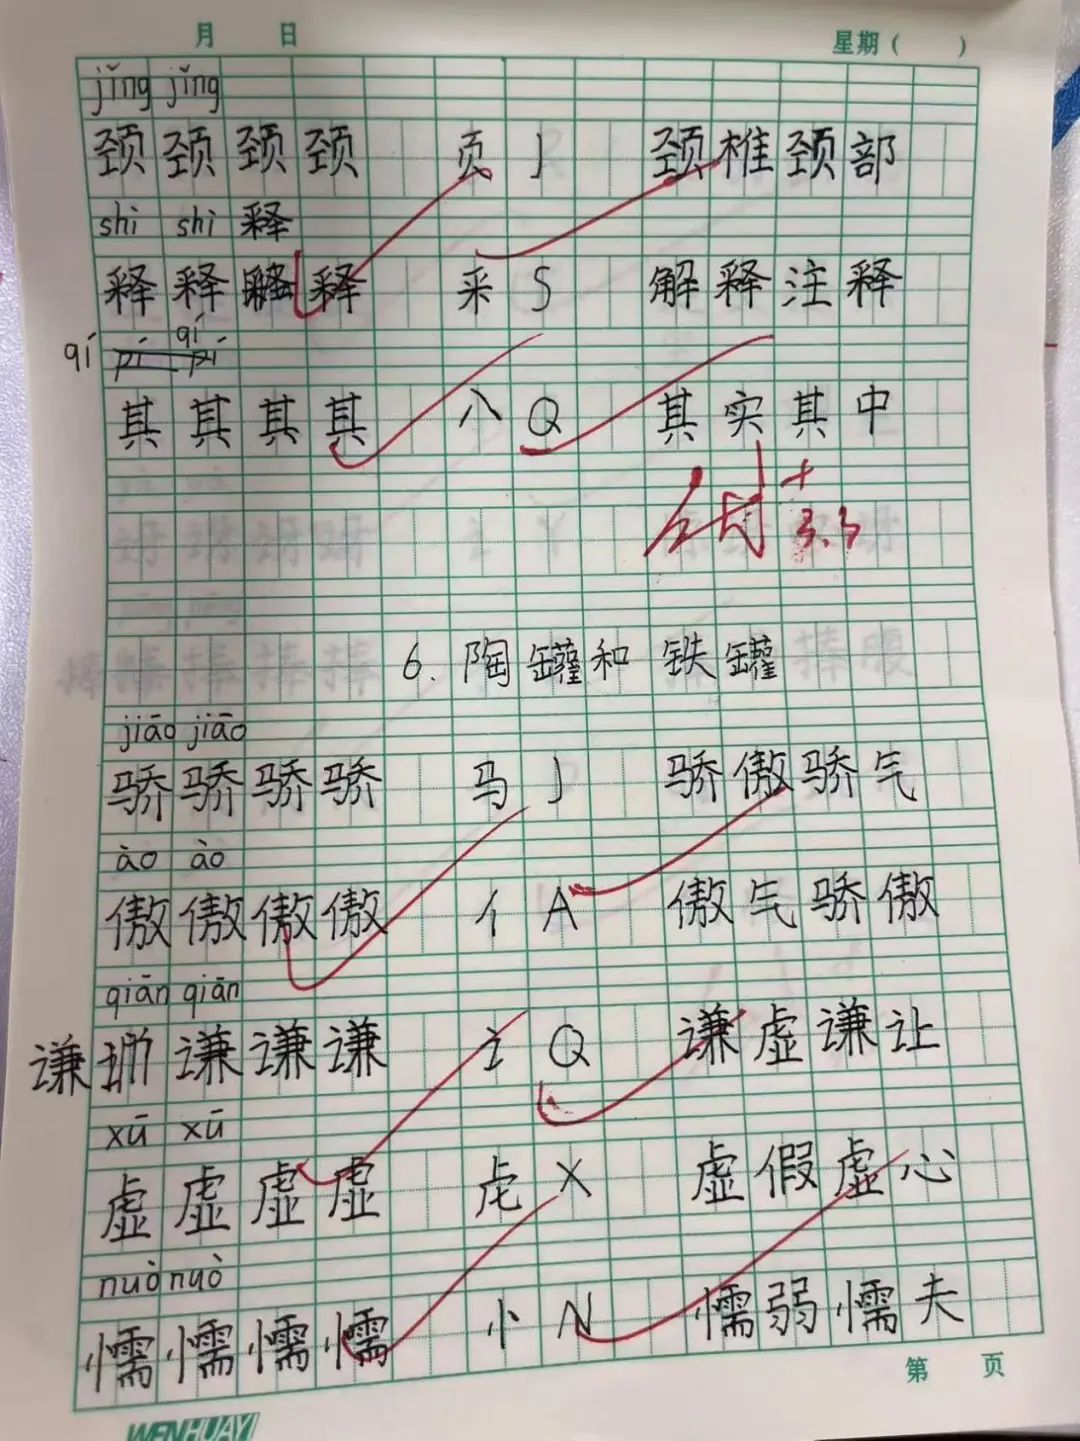 月 日 星期( )
jǐng jǐng
颈 颈 颈 颈 页 J 颈椎 颈部
shì shì 释
释 释 释 释 采 S 解释 注释
qí qí
其 其 其 其 八 Q 其实 其中
3.3
6. 陶罐和铁罐
jiāo jiāo
骄 骄 骄 骄 马 J 骄傲 骄气
ào ào
傲 傲 傲 傲 亻 A 傲气 骄傲
qiān qiān
谦 谦 谦 谦 讠 Q 谦虚 谦让
xū xū
虚 虚 虚 虚 虍 X 虚假 虚心
nuò nuò
懦 懦 懦 懦 忄 N 懦弱 懦夫
第 页
WENHUAYI